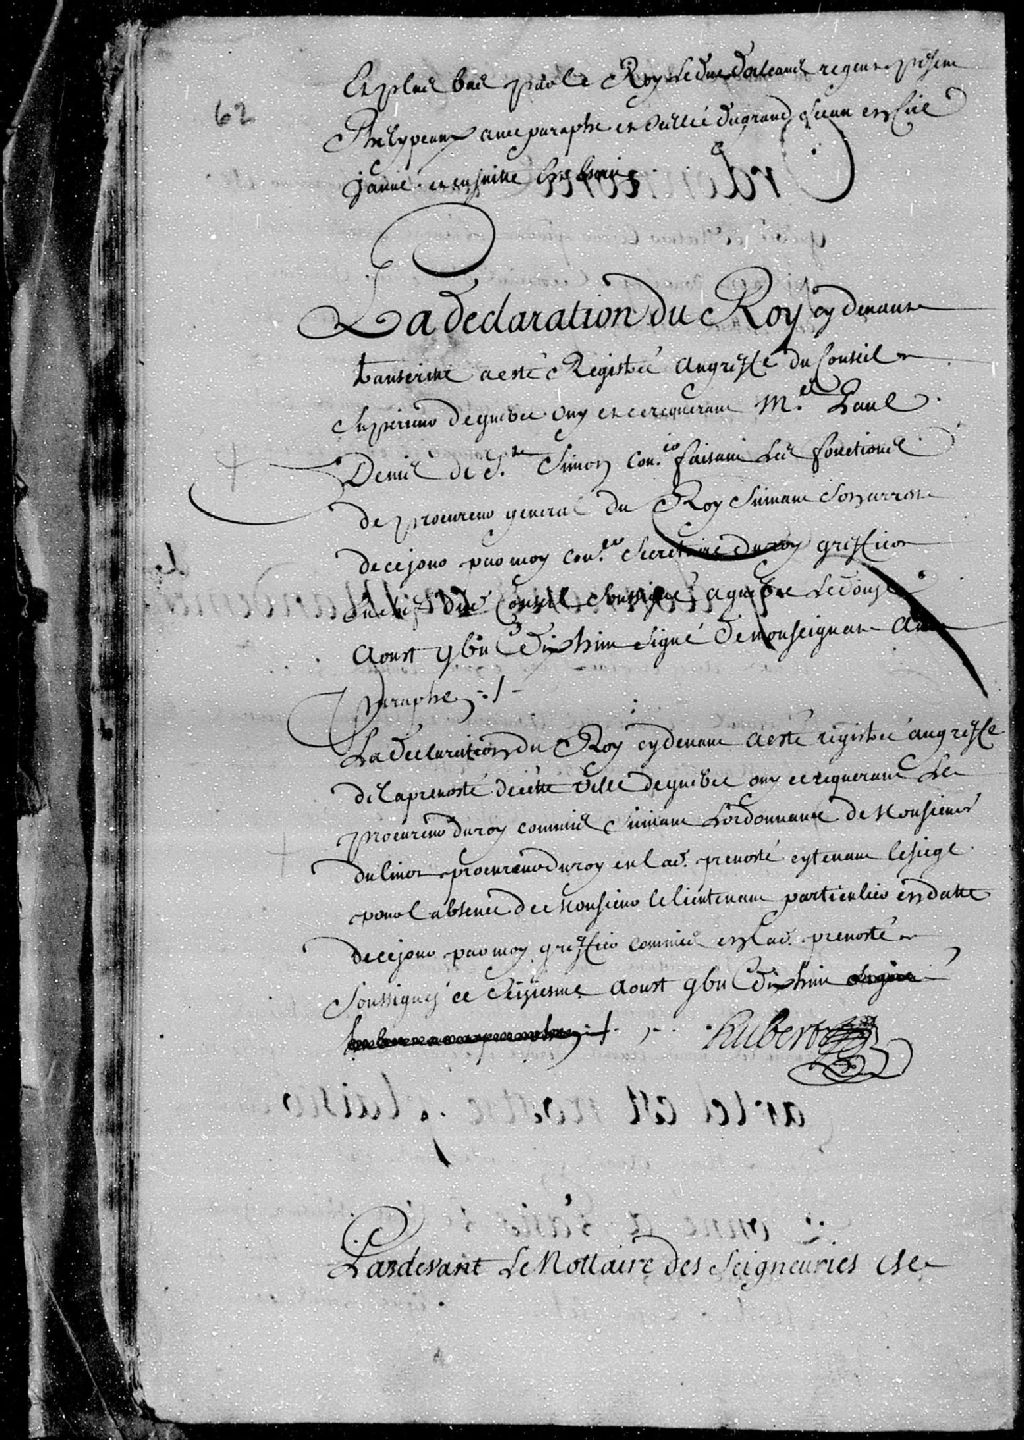 62
Et plus bas par le Roy Le duc dorleans regent present
Phelypeaux avec paraphe et scellé du grand sceau en cire
jaune et ensuitte est escrit
La declaration du Roy cy devant
transcrite a esté Registrée au greffe du Conseil
superieur de quebec ouy et ce requerant Mre Paul
Denis de St Simon conser faisant les fonctions
de procureur general du Roy suivant son arrest
de ce jour par moy coner secretaire du roy greffier
en chef dud Conseil soussigné a quebec Le douze
Aoust gbii C dix huit signé De monseignat avec
paraphe ./.
La declaration du Roy cy devant a esté registrée au greffe
de la prevosté de cette ville de quebec ouy et requerant Le
procureur du roy commis suivant L'ordonnance de Monsieur
procureur du roy en lad. prevosté et tenant le siege
pour l'absence de Monsieur le lieutenant particulier en datte
de ce jour par moy greffier commis en lad. prevosté
soussigné ce seiziesme Aoust gbii C dix huit
./. hubert
Pardevant Le Nottaire des seigneuries de